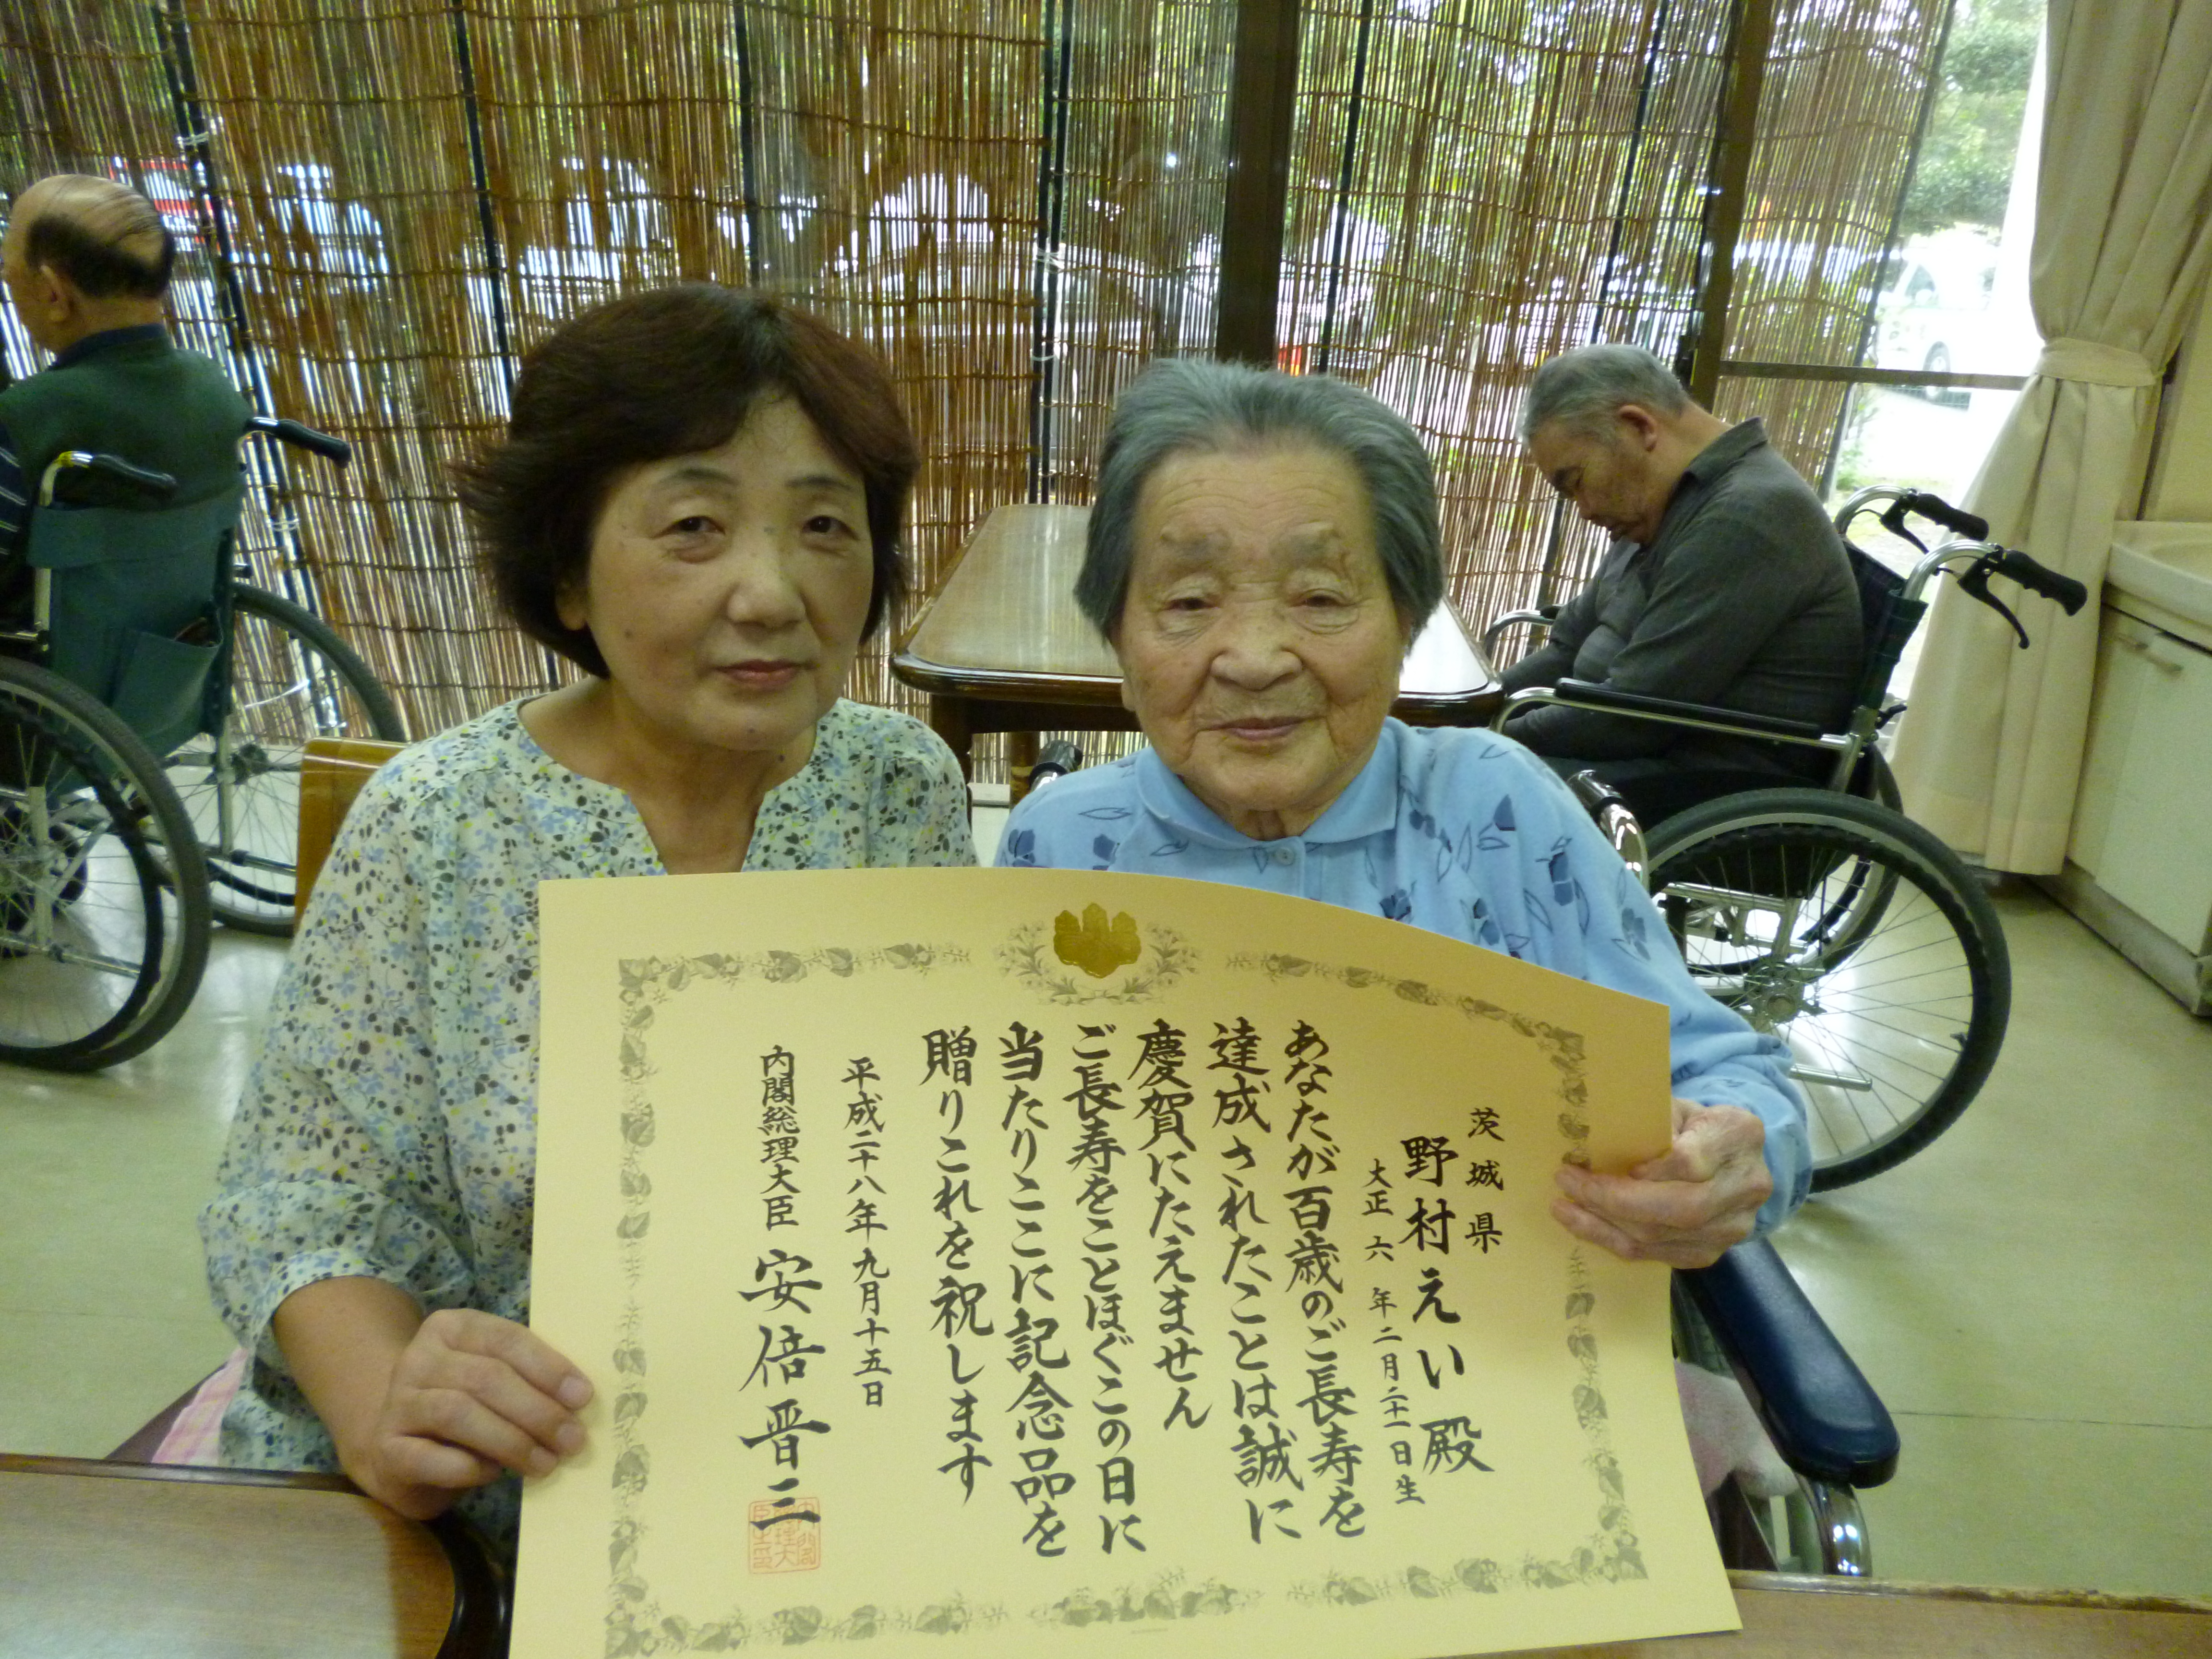 茨城県
野村えい殿
大正六年二月二十一日生
あなたが百歳のご長寿を
達成されたことは誠に
慶賀にたえません
ご長寿をことほぐこの日に
当たりここに記念品を
贈りこれを祝します
平成二十八年九月十五日
内閣総理大臣 安倍晋三